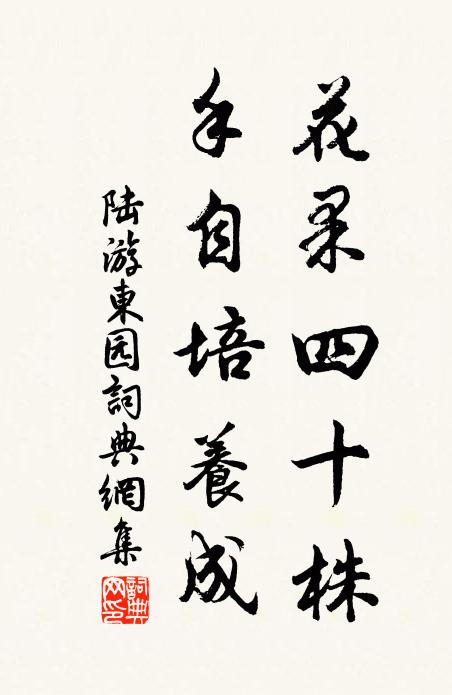 花果四十株
手自培養成
陸游東园詞典網集
詞典
网印